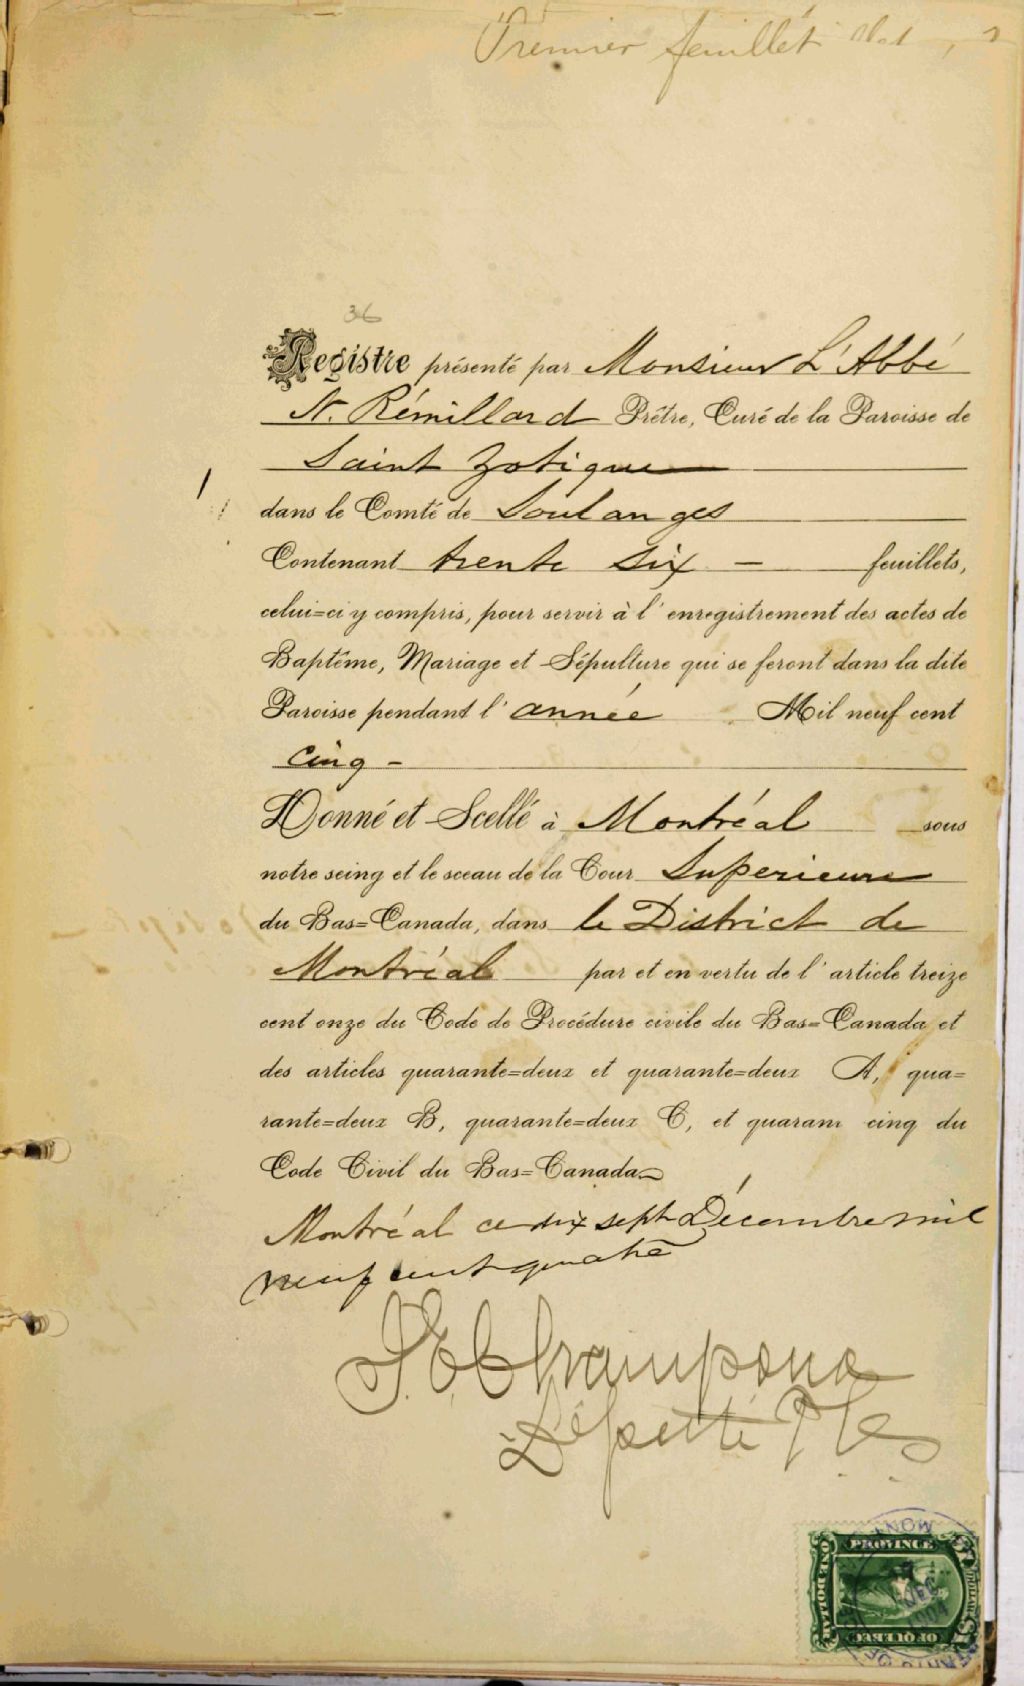 Premier feuillet
36
Registre présenté par Monsieur L'Abbé
N. Rémillard Prêtre, Curé de la Paroisse de
Saint Zotique
dans le Comté de Soulanges
Contenant trente six - feuillets,
celui=ci y compris, pour servir à l'enregistrement des actes de
Baptême, Mariage et Sépulture qui se feront dans la dite
Paroisse pendant l'année Mil neuf cent
cinq -
Donné et Scellé à Montréal sous
notre seing et le sceau de la Cour Superieure
du Bas=Canada, dans le District de
Montréal par et en vertu de l'article treize
cent onze du Code de Procédure civile du Bas=Canada et
des articles quarante=deux et quarante=deux A, qua=
rante=deux B, quarante=deux C, et quaram cinq du
Code Civil du Bas=Canada
Montréal ce dix sept Décembre mil
neuf cent quatre
Député
PROVINCE
OF QUEBEC
ONE DOLLAR
$1
DEC
1904